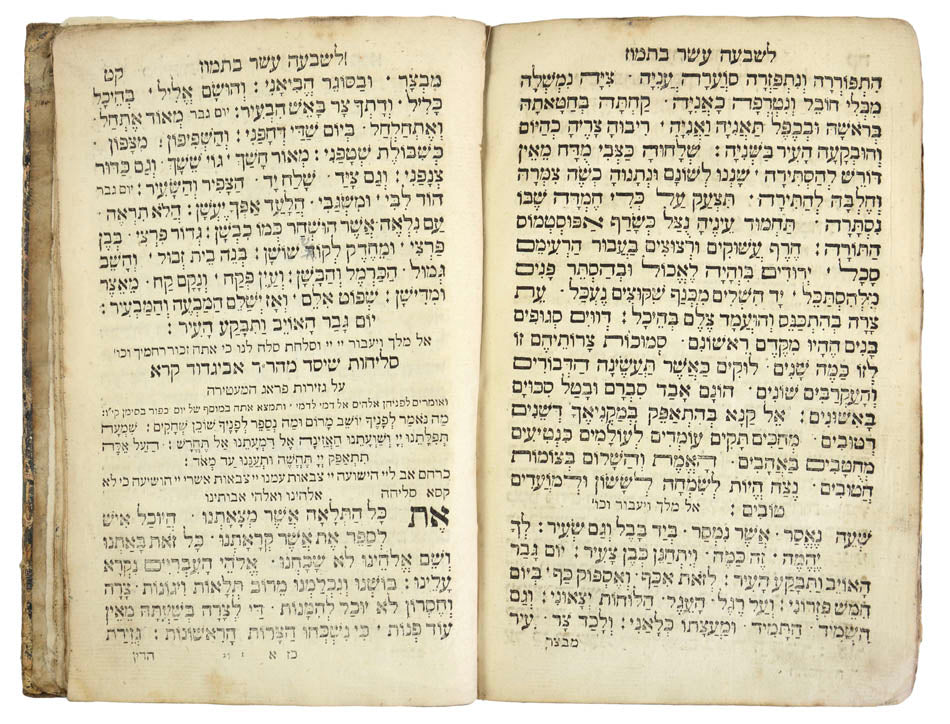 לשבעה עשר בתמוז
התפוררה ונתפזרה סוערה עניה · ציה נמשלה
מבלי חובל ונטרפה כאניה · קחתה בחטאתה
בראשה ובכפל תאניה ואניה · ריבוה צריה כהיום
והובקעה העיר בשניה: שלחוה כצבי מדח מאין
דורש להסתירה · שננו לשונם ונתנוה כשה צמרה
וחלבה להתירה · תצעק על כלי חמדה שבו
נסתרה · תחמוד עיניה נצל כשרף אפוסטמוס
התורה: חרף עשוקים ורצוצים בעבור הרעימם
סכל · ירודים בוהיה לאכול ובהסתר פנים
מלהסתכל · יד השלים מכנף שקוצים נעכל · עת
צרה בהתכנס והועמד צלם בהיכל: דווים סגופים
בנים ההיו מקדם ראשונם · סמוכות צרותיהם זו
לזו כמה שנים · לוקים כאשר תעשינה הדבורים
והעקרבים שונים · הוגם אבד סברם ובטל סכוים
באשונים: אל קנא בהתאפק במקניאך דשנים
רטובים · מחכים תקים עומדים לעולמים כנטיעים
מחטבים באהבים · האמת והשלום בצומות
חטובים · נצח היות לשמחה לששון ולמועדים
טובים: אל מלך ויעבור וכו'
שעה נאסר · אשר נמסר · ביד בבל וגם שעיר: לך
יהמה · זה כמה · ויתחנן כבן צעיר: יום גבר
האויב ותבקע העיר: לזאת אכף · ואספוק כף · ביום
חמש פזרוני: ועל רגל · העגל · הלוחות יצאוני: וגם
השמיד · התמיד · ובמעצתו כלאני: ולכד צר · עיר
מבצר
לשבעה עשר בתמוז קט
מבצר · ובסוגר הביאני: והושם אליל · בהיכל
כליל · ודתך צר באש הבעיר: יום גבר מאוד אתחל
ואתחלחל · ביום שדי דחפני: והשפיפון · מצפון
כשבולת שטפני: מאור חשך · גוי ששך · וגם כדור
צנפני: וגם ציד · שלח יד · הצפיר והשעיר: יום גבר
הוד לבי · ומשגבי · הלעד אפך יעשן: הלא תראה
עם נלאה אשר הושחר כמו כבשן: גדור פרצי · בבן
פרצי · ומחדק לקוט שושן: בנה בית זבול · והשב
גבול · הכרמל והבשן: ועין פקח · ונקם קח · מאצר
ומדישן: שפוט אלם · ואז ישלם המבעה והמבעיר:
יום גבר האויב ותבקע העיר:
אל מלך ויעבור יי יי וסלחת סלח לנו כי אתה זכור רחמיך וכו'
סליחות שיסד מהר״ר אביגדור קרא
על גזירות פראג המעטירה
ואומרים לפניהן אלהים אל דמי לדמי · ותמצא אתה במוסף של יום כפור בסימן ק״ו:
מה נאמר לפניך יושב מרום ומה נספר לפניך שוכן שחקים: שמעה
תפלתנו יי ושועתנו האזינה אל דמעתנו אל תחרש: העל אלה
תתאפק יי תחשה ותעננו עד מאד:
כרחם אב ליי הישועה יי צבאות עמנו יי צבאות אשרי יי הושיעה כי לא
קסא סליחה אלהינו ואלהי אבותינו
את כל התלאה אשר מצאתנו · היוכל איש
לספר את אשר קראתנו · כל זאת באתנו
ושם אלהינו לא שכחנו: אלהי העבריים נקרא
עלינו: בושנו ונכלמנו מרוב תלאות ויגונות · צרה
וחסרון לא יוכל להמנות · די לצרה בשעתה מאין
עוד פנות · כי נשכחו הצרות הראשונות: גזירת
כז א הדין